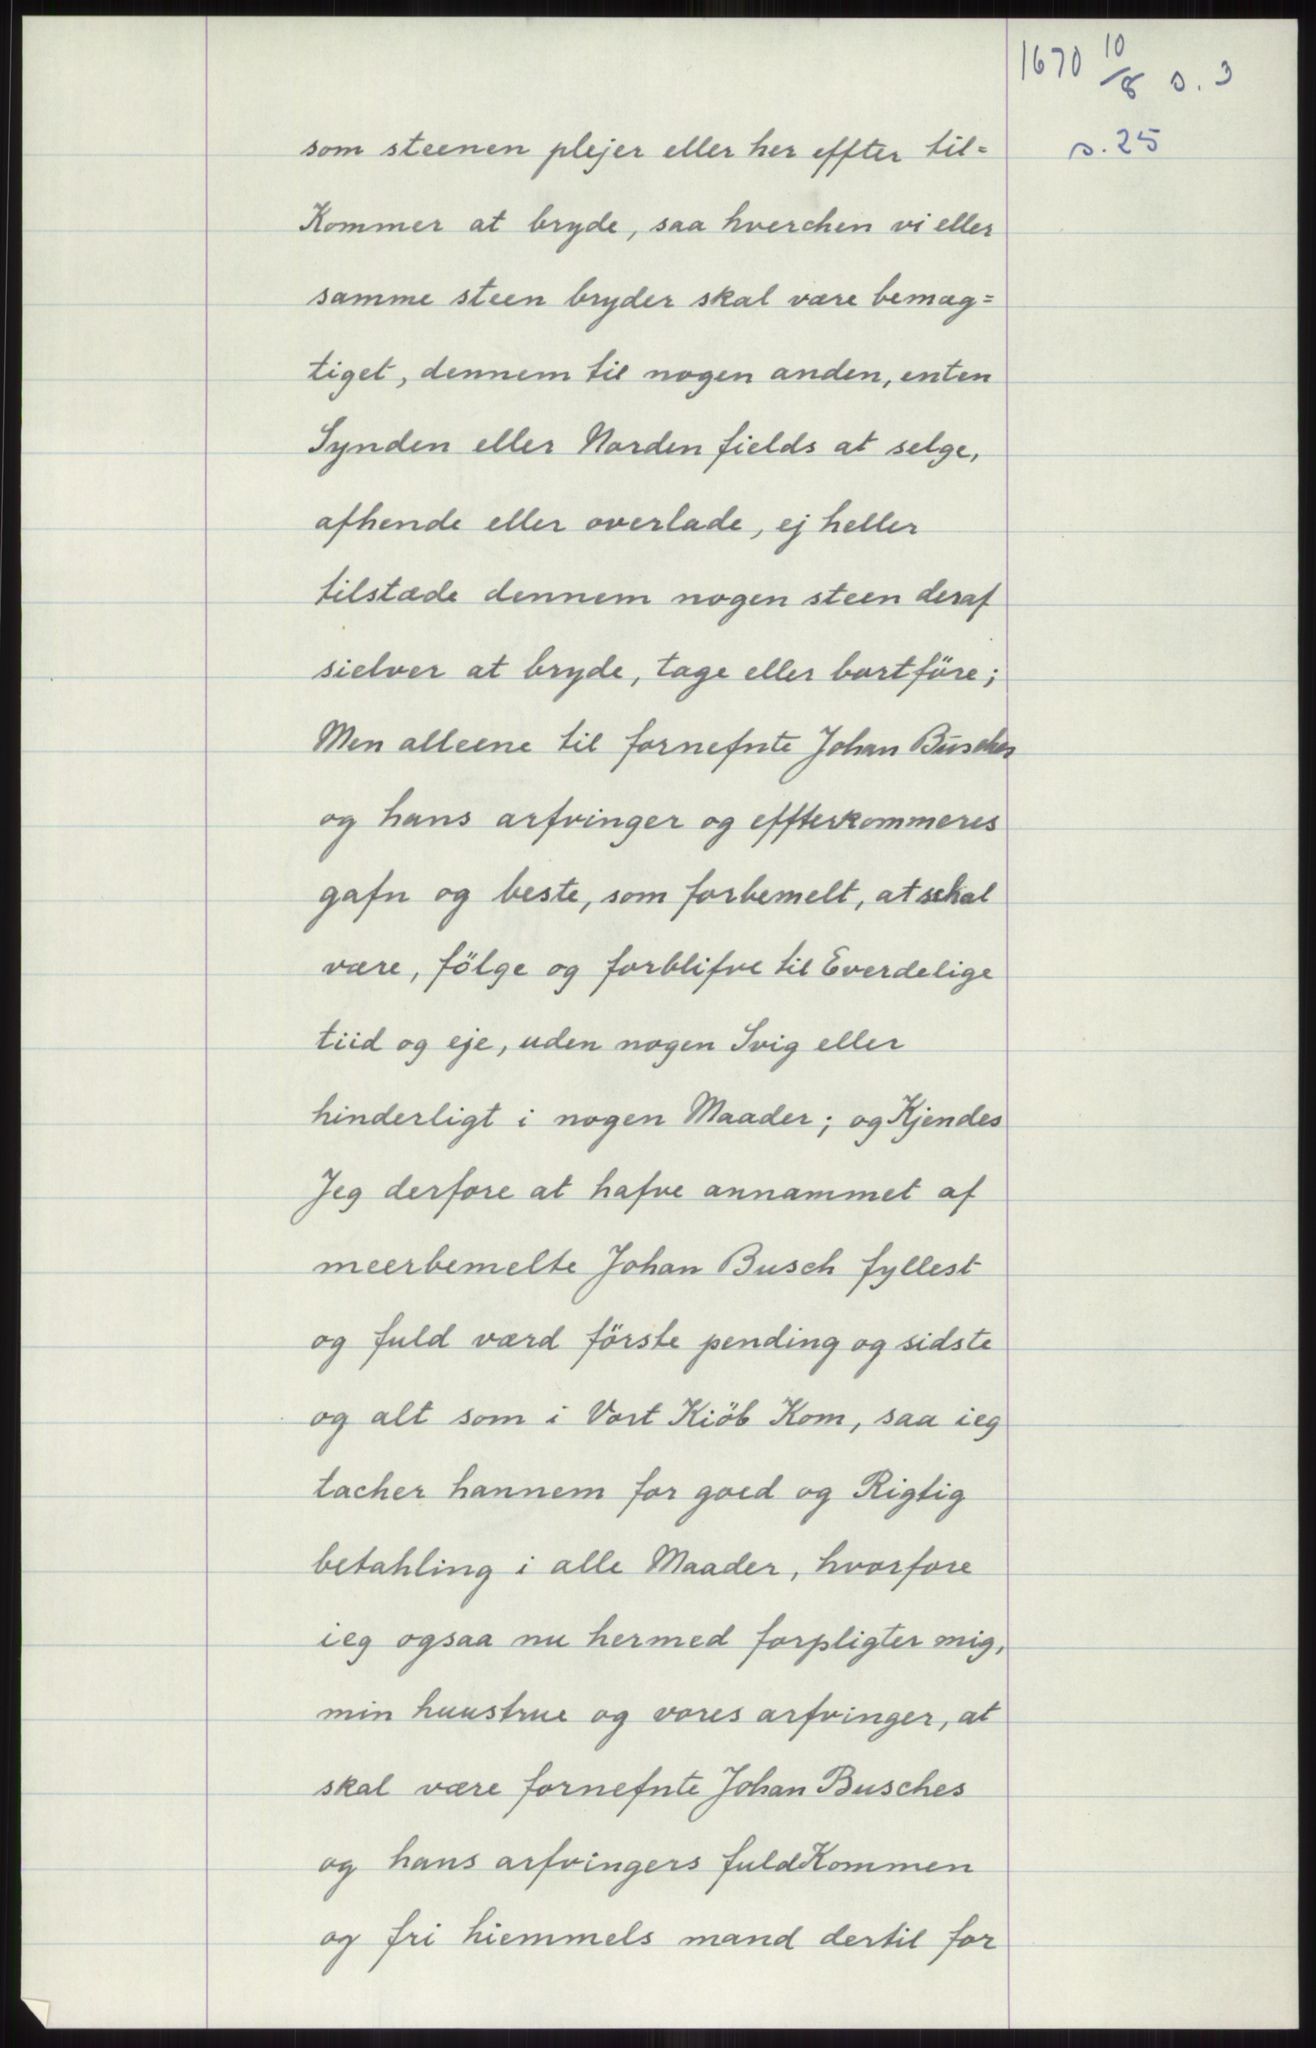 1670 10/8 s. 3
s. 25
som steenen plejer eller her effter til=
Kommer at bryde, saa hverchen vi eller
samme steen bryder skal være bemæg=
tiget, dennem til nogen anden, enten
Synden eller Norden fields at selge,
afhende eller overlade, ej heller
tilstæde dennem nogen steen deraf
sielver at bryde, tage eller bortföre;
Men alleene til fornefnte Johan Busches
og hans arfvinger og effterkommeres
gafn og beste, som forbemelt, at skal
være, fölge og forblifve til Everdelige
tiid og eje, uden nogen Svig eller
hinderligt i nogen Maader; og Kjendes
Jeg derfore at hafve annammet af
meerbemelte Johan Busch fyllest
og fuld værd förste pending og sidste
og alt som i Vort Kiöb Kom, saa ieg
tacher hannem for goed og Rigtig
betahling i alle Maader, hvorfore
ieg ogsaa nu hermed forpligter mig,
min huustrue og vores arfvinger, at
skal være fornefnte Johan Busches
og hans arfvingers fuldKommen
og fri hiemmels mand dertil for